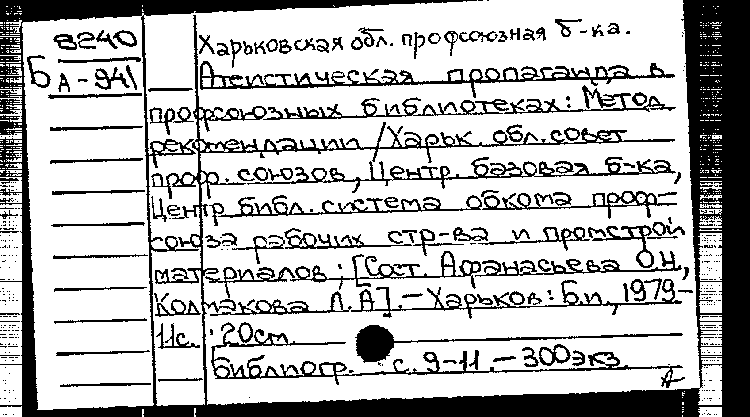 8240
Б А-941
Харьковская обл. профсоюзная б-ка.
Атеистическая пропаганда в
профсоюзных библиотеках: Метод
рекомендации / Харьк. обл. совет
проф. союзов, Центр. базовая б-ка,
Центр библ. система обкома проф-
союза рабочих стр-ва и промстрой
материалов; [Сост. Афанасьева О.Н.,
Колмакова Л.А]. - Харьков: Б.и., 1979-
11с. : 20см.
Библиогр. : с. 9-11. - 300экз.